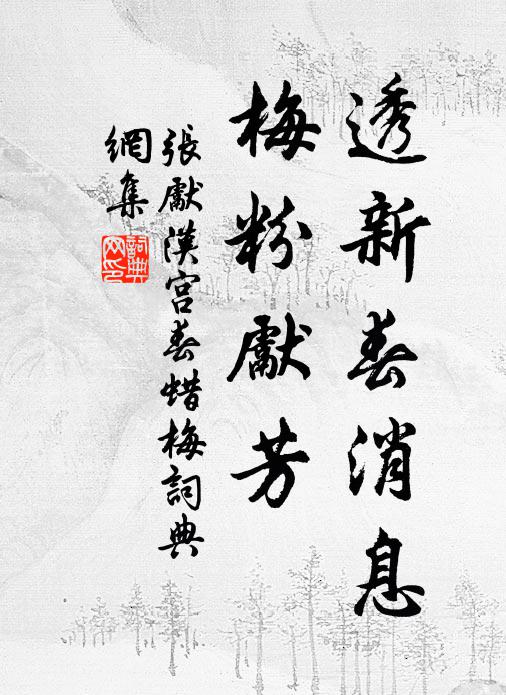 透新春消息
梅粉獻芳
張獻漢宮春蜡梅詞典
網集
詞典
网印